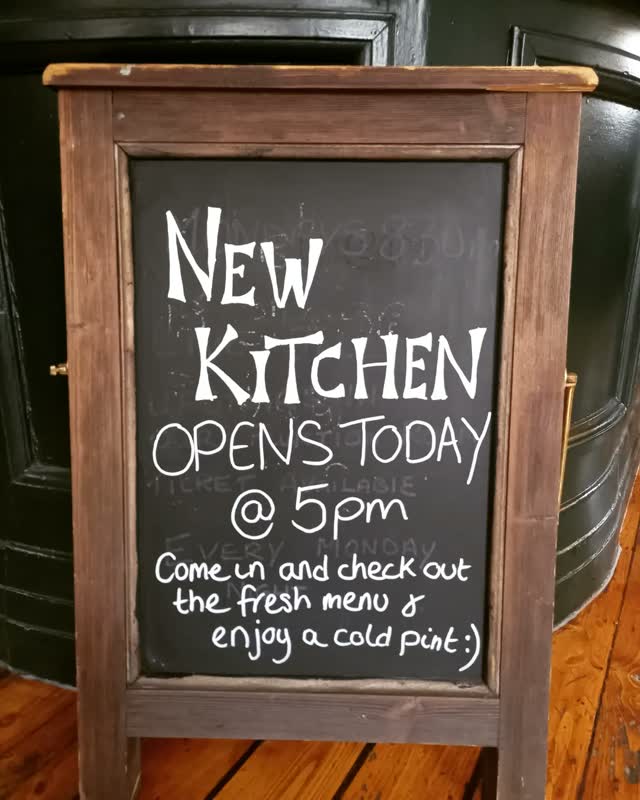 NEW
KITCHEN
OPENS TODAY
@ 5pm
Come in and check out
the fresh menu &
enjoy a cold pint :)
TICKET AVAILABLE
EVERY MONDAY